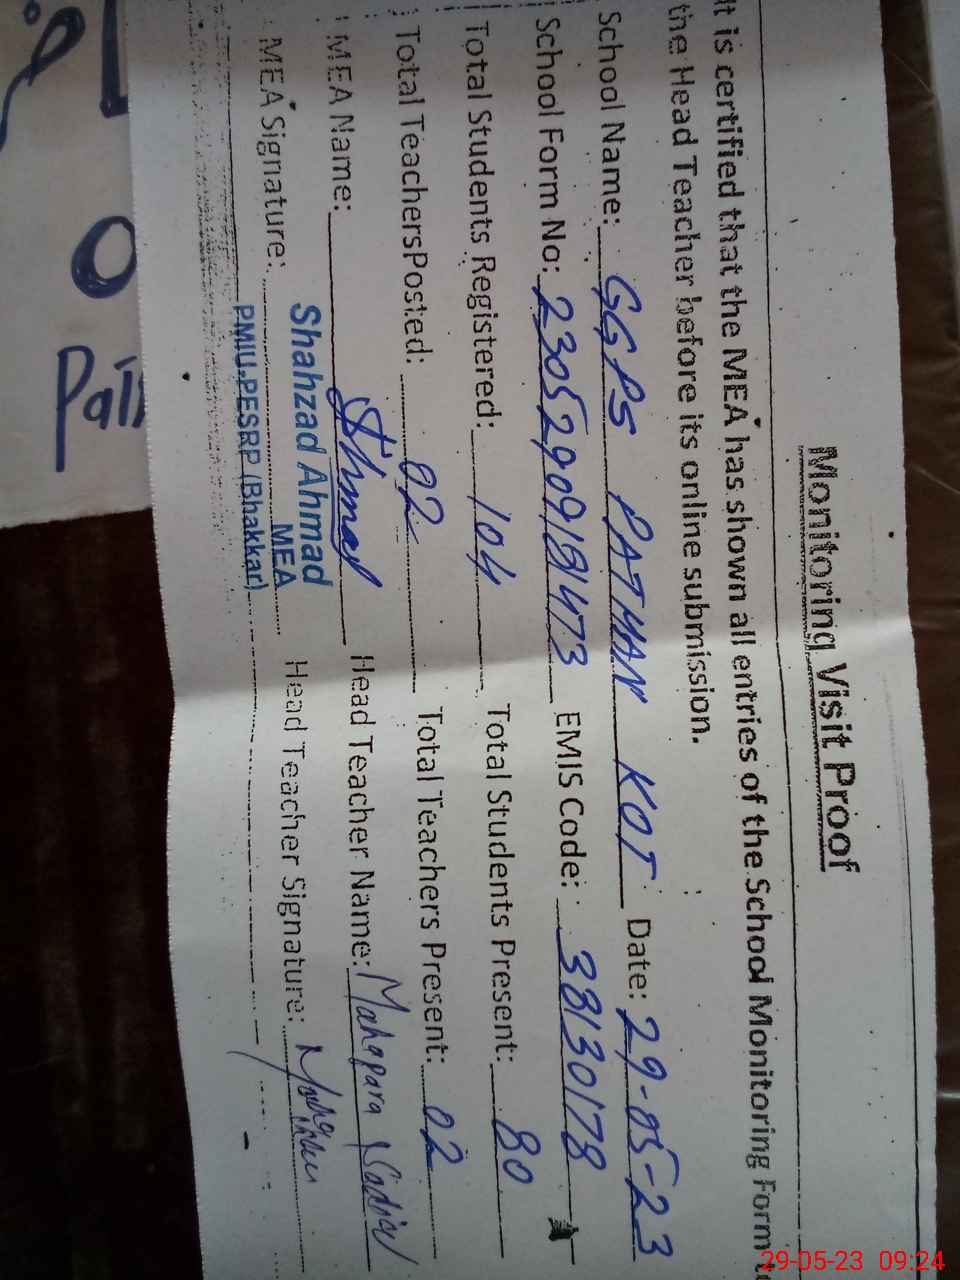 Monitoring Visit Proof
It is certified that the MEA has shown all entries of the School Monitoring Form
the Head Teacher before its online submission.
School Name: GGPS PATHAN KOT Date: 29-05-23
School Form No: 2305290918473 EMIS Code: 38130178
Total Students Registered: 104 Total Students Present: 80
Total TeachersPosted: 02 Total Teachers Present: 02
MEA Name: Ahmad Head Teacher Name: Mahapara
MEA Signature: Head Teacher Signature:
Shahzad Ahmad
MEA
PMIU-PESRP (Bhakkar)
29-05-23 09:24